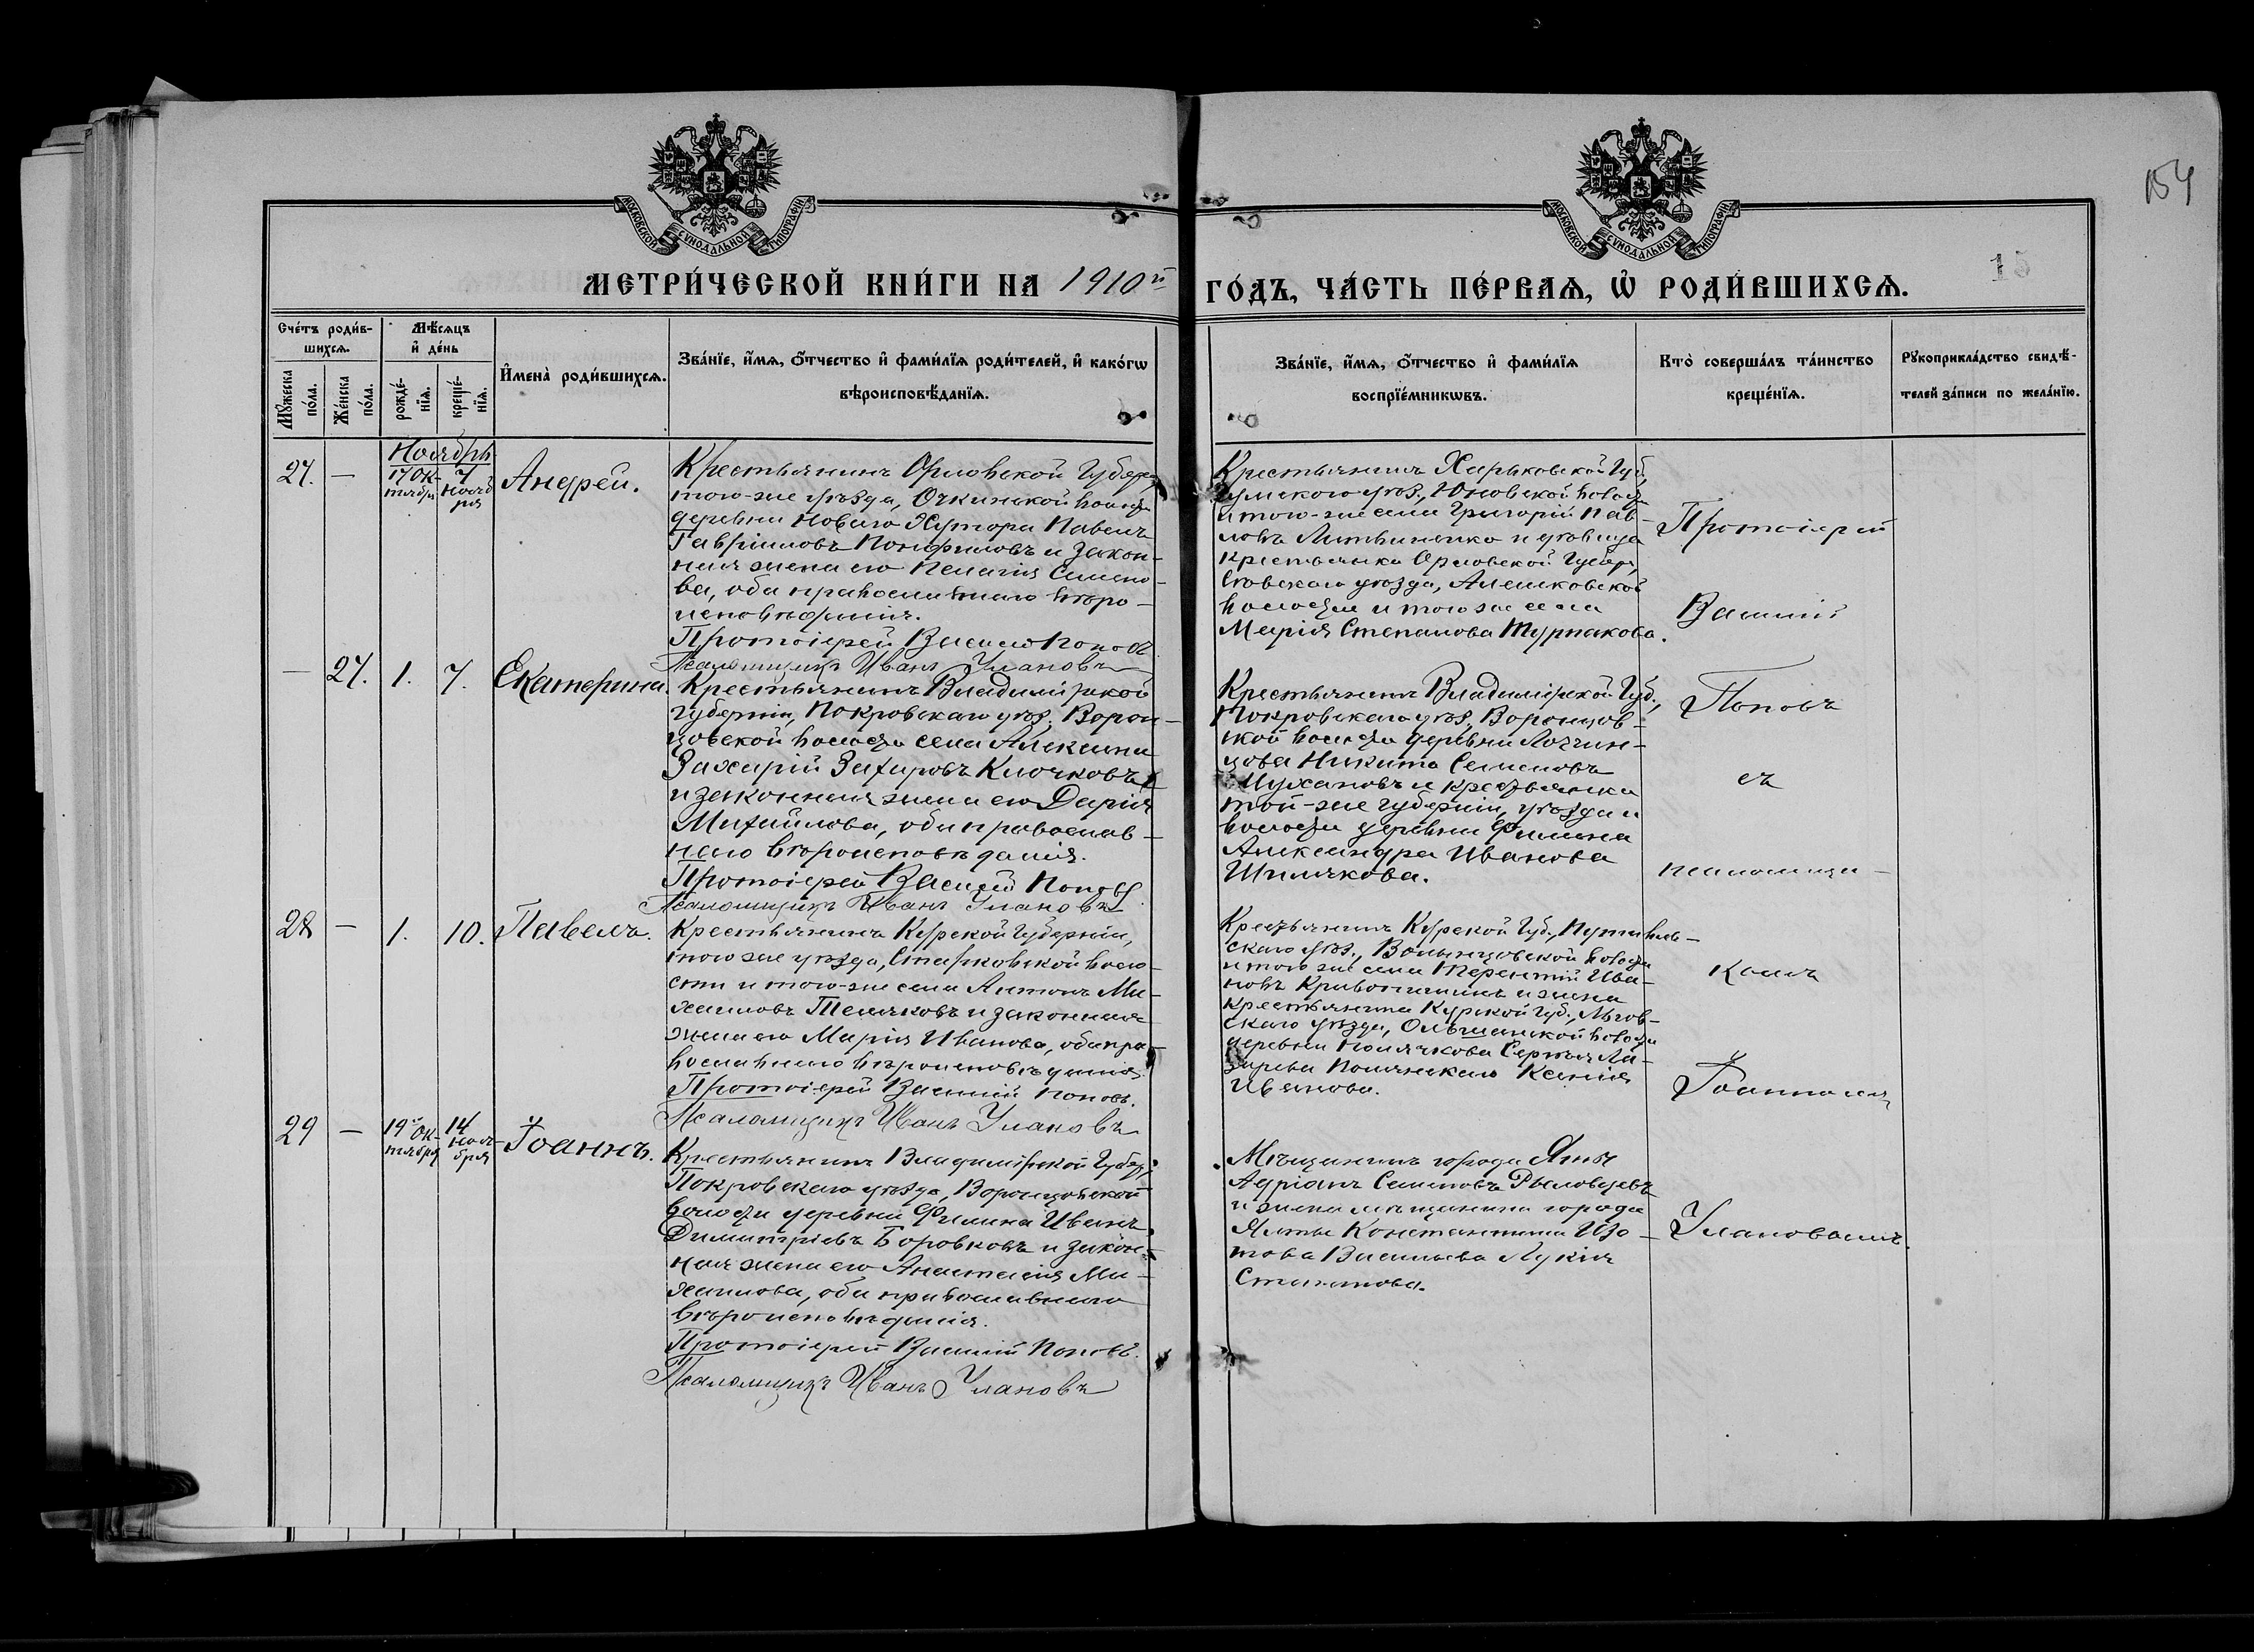 154
15
МОСКОВСКОЙ СѴНОДАЛЬНОЙ ТИПОГРАФІИ
МОСКОВСКОЙ СѴНОДАЛЬНОЙ ТИПОГРАФІИ
МЕТРИ́ЧЕСКОЙ КНИ́ГИ НА 1910й ГО́ДЪ, ЧА́СТЬ ПЕ́РВАѦ, Ѡ҆ РОДИ́ВШИХСѦ.
Сче́тъ роди́в-
шихсѧ.
Мꙋ́жеска по́ла.
Же́нска по́ла.
Мѣ́сѧцъ
и҆ де́нь
рожде́-
нїѧ.
креще́-
нїѧ.
И҆мена̀ роди́вшихсѧ.
Зва́нїе, и҆́мѧ, ѻ҆́тчество и҆ фами́лїѧ роди́телей, и҆ како́гѡ
вѣроисповѣ́данїѧ.
Зва́нїе, и҆́мѧ, ѻ҆́тчество и҆ фами́лїѧ
воспрїе́мникѡвъ.
Кто̀ соверша́лъ та́инство
креще́нїѧ.
Рꙋкоприкла́дство свидѣ́-
телей за́писи по жела́нїю.
Ноябрь
27. — 17 Ок-
тября 7
нояб
ря Андрей.
Крестьянинъ Орловской Губер
того-же уѣзда, Очкинской волости
деревни Новаго Хутора Павелъ
Гавріиловъ Понфиловъ и закон-
ная жена его Пелагія Семено-
ва, оба православнаго вѣро-
исповѣданія.
Протоіерей Василій Поповъ
Псаломщикъ Иванъ Улановъ
Крестьянинъ Харьковской Губ,
Сумского уѣз., Юновской волости
и того-же села Григорій Пав-
ловъ Литвиненко и дѣвица
крестьянка Орловской Губер,
Сѣвскаго уѣзда, Алешковской
волости и того же села
Марія Степанова Турпакова.
— 27. 1. 7. Екатерина.
Крестьянинъ Владимірской
Губерніи, Покровскаго уѣз. Ворон-
цовской волости села Алексина
Захарій Захаровъ Клочковъ
и законная жена его Дарія
Михайлова, оба православ-
наго вѣроисповѣданія.
Протоіерей Василій Поповъ.
Псаломщикъ Иванъ Улановъ
Крестьянинъ Владимірской Губ.,
Покровскаго уѣз. Воронцов-
ской волости деревни
Никита Семеновъ
Мухановъ и крестьянка
той-же губерніи, уѣзда и
волости деревни Филина
Александра Иванова
Шмлякова.
28 — 1. 10. Павелъ.
Крестьянинъ Курской Губерніи,
того же уѣзда, Старковской воло-
сти и того-же села Антонъ Ми-
хаиловъ Телячковъ и законная
жена его Марія Иванова, оба пра-
вославнаго вѣроисповѣданія.
Протоіерей Василій Поповъ.
Псаломщикъ Иванъ Улановъ
Крестьянинъ Курской Губ., Путивль-
скаго уѣз., Волынцовской волости
и того же села Терентій Ива-
новъ и жена
крестьянина Курской Губ., Льгов-
скаго уѣзда, Ольшанской волости
деревни Полячкова Сергѣя Ла-
зарева Ксенія
Иванова.
29 — 19 Ок-
тября 14
нояб-
бря Іоаннъ.
Крестьянинъ Владимірской Губер,
Покровскаго уѣзда, Воронцовской
волости деревни Филина Иванъ
Димитріевъ Боровковъ и закон-
ная жена его Анастасія Ми-
хаилова, оба православнаго
вѣроисповѣданія.
Протоіерей Василій Поповъ.
Псаломщикъ Иванъ Улановъ
Мѣщанинъ города Ялты
Адріанъ Семеновъ Рыловцевъ
и жена мѣщанина города
Ялты Константина Изо-
това Васильева Лукія
Степанова.
Протоіерей
Василій
Поповъ
съ
псаломщи-
комъ
Іоанномъ
Улановымъ.